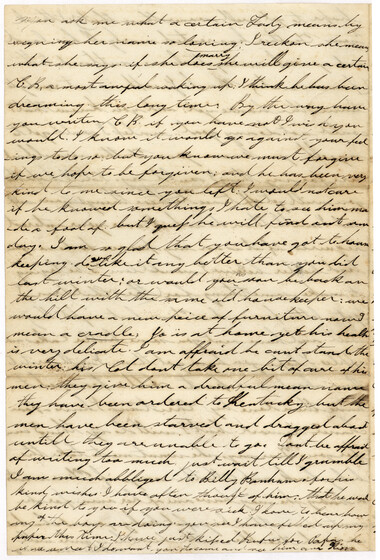 man ask me what a certain Lady means by
signing her name so loving, I reckon she means
what she says if she does marry she will give a certain
C.B. a most awful waking up I think he has been
dreaming this long time; By the way have
you written C B if you have not I wish you
would. I know it would go against your feel
ings to do so, but you know we must forgive
if we hope to be forgiven; and he has been very
kind to me since you left I would not care
if he knowed something, I hate to see him ma
de a fool of but I guess he will find out some
day. I am so glad that you have got to house
keeping do you like it any better than you did
last winter; or would you soon be back on
the hill with the same old housekeeper; we
would have a new piece of furniture now I
mean a cradle; Jo is at home yet his health
is very delicate I am affraid he cant stand the
winter, his Col dont take one bit of care of his
men they give him a dreadful mean name
they have been ordered to Kentucky but the
men have been starved and dragged about
untill they are unable to go; Dont be affraid
of writing too much just wait till I grumble
I am much abbliged to Billy Bonham for his
kind wishes I have often thought of him; that he would
be kind to you if you were sick I love to hear how
my the boys are doing; you see I have filled up my
paper this time; I have just